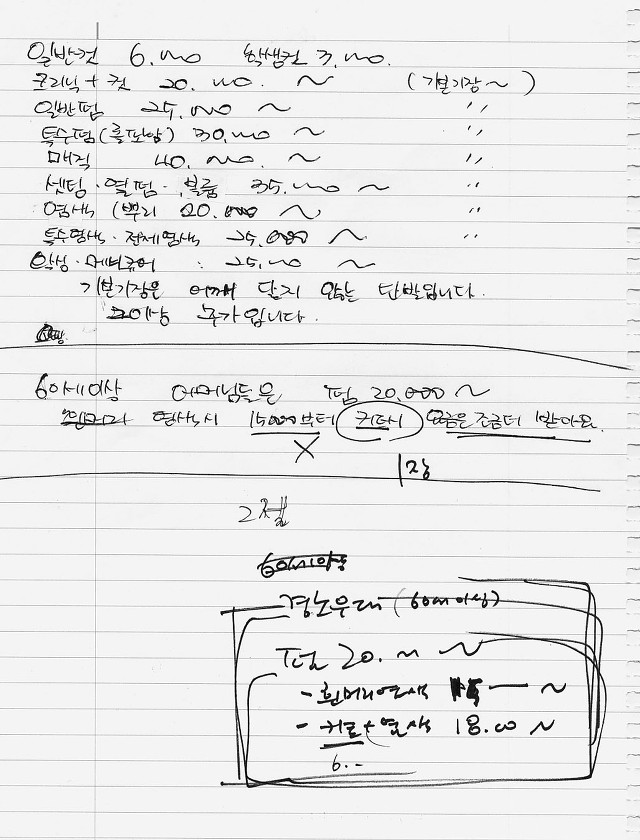 일반컷 6.000 학생컷 3.000.
크리닉 + 컷 20.000. ~ (기본기장~)
일반펌 25.000 ~ 〃
특수펌(롤파마) 30.000 ~ 〃
매직 40.000. ~ 〃
셋팅·열펌·볼륨 35.000 ~ 〃
염색 (뿌리 20.000 ~ 〃
특수염색·전체염색 25.000 ~ 〃
왁싱·메니큐어 : 25.000 ~
기본기장은 어깨 닿지 않는 단발입니다.
그이상 추가입니다.
60세이상 어머님들은 펌 20.000 ~
염색시 15000부터 커트시 요금은 조금더 받아요.
X
1장
2절
경노우대 (60세이상)
펌 20.000 ~
- 흰머리염색 ~
- 커트 + 염색 18.000 ~
6.--